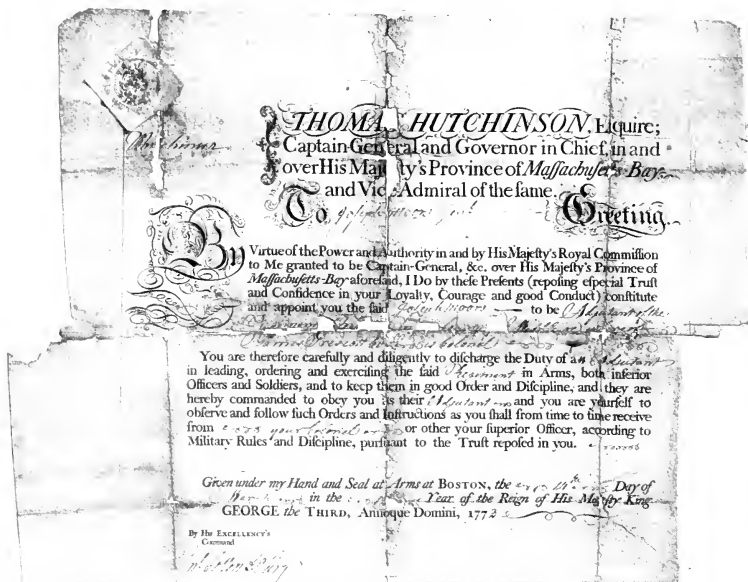 THOMAS HUTCHINSON, Esquire;
Captain-General and Governor in Chief, in and
over His Majesty's Province of Massachusetts-Bay
and Vice-Admiral of the same.
To Joseph Moors Greeting.
By Virtue of the Power and Authority in and by His Majesty's Royal Commission
to Me granted to be Captain-General, &c. over His Majesty's Province of
Massachusetts-Bay aforesaid, I Do by these Presents (reposing especial Trust
and Confidence in your Loyalty, Courage and good Conduct) constitute
and appoint you the said Joseph Moors to be Adjutant of the
is Colonel
You are therefore carefully and diligently to discharge the Duty of an Adjutant
in leading, ordering and exercising the said Regiment in Arms, both inferior
Officers and Soldiers, and to keep them in good Order and Discipline, and they are
hereby commanded to obey you as their Adjutant and you are yourself to
observe and follow such Orders and Instructions as you shall from time to time receive
from your Colonel or other your superior Officer, according to
Military Rules and Discipline, pursuant to the Trust reposed in you.
Given under my Hand and Seal at Arms at BOSTON, the 14th Day of
in the Year of the Reign of His Majesty King
GEORGE the THIRD, Annoque Domini, 1773
By His EXCELLENCY'S
Command